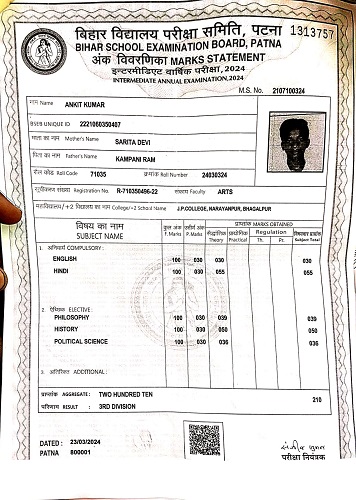 बिहार विद्यालय परीक्षा समिति, पटना 1313757
BIHAR SCHOOL EXAMINATION BOARD, PATNA
अंक विवरणिका MARKS STATEMENT
इन्टरमीडिएट वार्षिक परीक्षा, 2024
INTERMEDIATE ANNUAL EXAMINATION, 2024
M.S. No. 2107100324
नाम Name ANKIT KUMAR
BSEB UNIQUE ID 2221060350407
माता का नाम Mother's Name SARITA DEVI
पिता का नाम Father's Name KAMPANI RAM
रोल कोड Roll Code 71035 क्रमांक Roll Number 24030324
सूचीकरण संख्या Registration No. R-710350496-22 संकाय Faculty ARTS
महाविद्यालय/+2 विद्यालय का नाम College/+2 School Name J.P.COLLEGE, NARAYANPUR, BHAGALPUR
विषय का नाम SUBJECT NAME
पूर्णांक F. Marks
उत्तीर्णांक P.Marks
प्राप्तांक MARKS OBTAINED
सैद्धांतिक Theory
प्रायोगिक Practical
Regulation
Th. Pt.
विषयवार प्राप्तांक Subject Total
1. अनिवार्य COMPULSORY :
ENGLISH 100 030 030 030
HINDI 100 030 055 055
2. ऐच्छिक ELECTIVE :
PHILOSOPHY 100 030 039 039
HISTORY 100 030 050 050
POLITICAL SCIENCE 100 030 036 036
3. अतिरिक्त ADDITIONAL :
प्राप्तांक AGGREGATE : TWO HUNDRED TEN 210
परिणाम RESULT : 3RD DIVISION
DATED : 23/03/2024
PATNA 800001
परीक्षा नियंत्रक